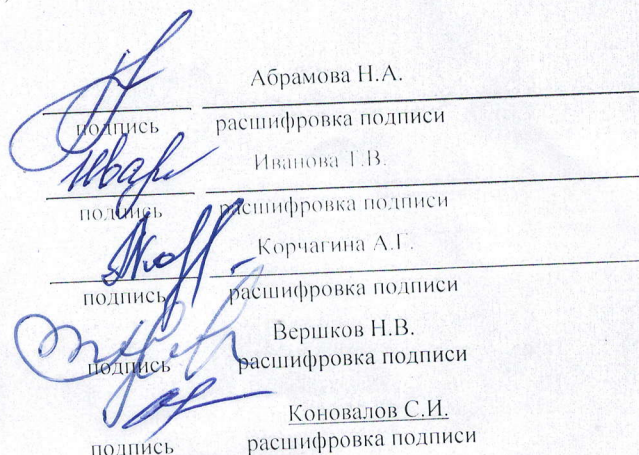 Абрамова Н.А.
подпись расшифровка подписи
Иванова Г.В.
подпись расшифровка подписи
Корчагина А.Г.
подпись расшифровка подписи
Вершков Н.В.
подпись расшифровка подписи
Коновалов С.И.
подпись расшифровка подписи